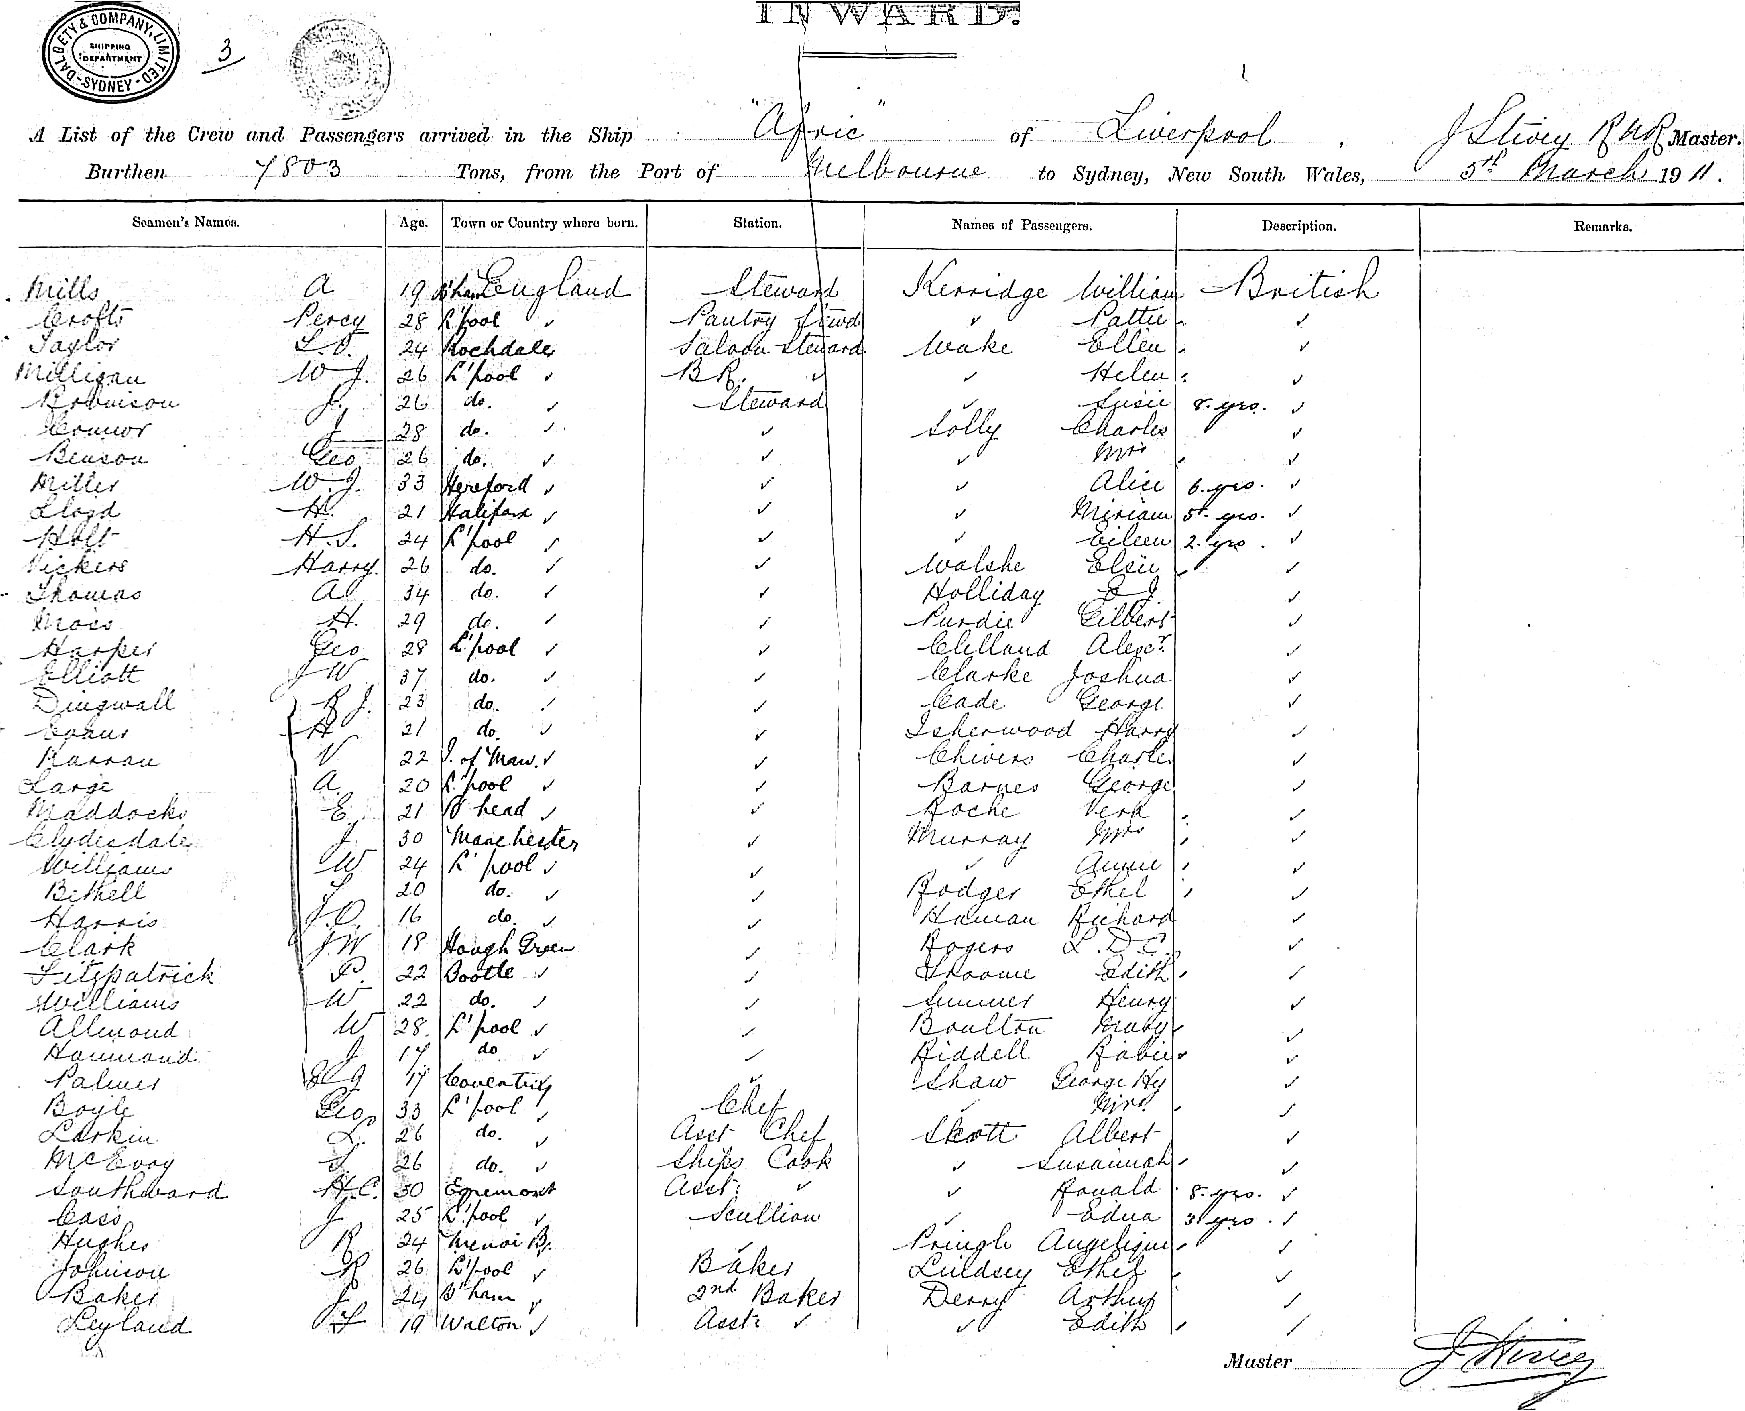 INWARD.
DALGETY & COMPANY, LIMITED
SHIPPING DEPARTMENT
SYDNEY
3
A List of the Crew and Passengers arrived in the Ship "Afric" of Liverpool, J Stivey RNR Master.
Burthen 7803 Tons, from the Port of Melbourne to Sydney, New South Wales, 5th March 1911.
Seamen's Names. Age. Town or Country where born. Station. Names of Passengers. Description. Remarks.
Mills A 19 B'ham England Steward Kerridge William British
Crofts Percy 28 L'pool ✓ Pantry Stwd " Pattie ✓
Taylor 24 Rochdale Saloon Steward Wake Ellen ✓
Milligan W J. 26 L'pool ✓ B.R. ✓ " Helen ✓
Robinson J. 26 do. ✓ Steward " Susie 8. yrs. ✓
Connor J 28 do. ✓ ✓ Solly Charles ✓
Benson Geo 26 do. ✓ ✓ " Mrs ✓
Miller W. J. 33 Hereford ✓ ✓ " Alice 6. yrs. ✓
Lloyd H. 21 Halifax ✓ ✓ " Miriam 5. yrs. ✓
Holt H. S. 24 L'pool ✓ ✓ " Eileen 2. yrs. ✓
Vickers Harry 26 do. ✓ ✓ Walshe Elsie ✓
Thomas A 34 do. ✓ ✓ Holliday E J ✓
Moss H. 29 do. ✓ ✓ Purdie Gilbert ✓
Harper Geo 28 L'pool ✓ ✓ Clelland Alexr. ✓
Elliott J W 37 do. ✓ ✓ Clarke Joshua ✓
Dingwall R J. 23 do. ✓ ✓ Cade George ✓
H 21 do. ✓ ✓ Isherwood Harry ✓
Karran V 22 I. of Man. ✓ ✓ Chivers Charles ✓
Large A. 20 L'pool ✓ ✓ Barnes George ✓
Maddocks E. 21 B'head ✓ ✓ Roche Vera ✓
Clydesdale J. 30 Manchester ✓ Murray Mrs ✓
Williams W 24 L'pool ✓ ✓ " Annie ✓
Bethell 20 do. ✓ ✓ Rodger Ethel ✓
Harris J. O. 16 do. ✓ ✓ Haman Richard ✓
Clark J W 18 Hough Green ✓ Rogers L. D. C. ✓
Fitzpatrick P. 22 Bootle ✓ ✓ Edith ✓
Williams W 22 do. ✓ ✓ Henry ✓
Allmond W 28. L'pool ✓ ✓ Boulton Mary ✓
Hammond J 17 do ✓ ✓ Riddell ✓
Palmer 17 Coventry ✓ Shaw George Hy ✓
Boyle Geo 33 L'pool ✓ Chef " Mrs. ✓
Larkin L. 26 do. ✓ Asst Chef Skott Albert ✓
McEvoy 26 do. ✓ Ships Cook " Susannah ✓
Southward H. C. 30 Egremont Asst: ✓ " Ronald 8. yrs. ✓
Cass J 25 L'pool ✓ Scullion " Edna 3 yrs. ✓
Hughes R 24 Menai B. ✓ Pringle Angelique ✓
Johnson R 26 L'pool ✓ Baker Lindsey Ethel ✓
Baker J 24 B'ham ✓ 2nd Baker Derry Arthur ✓
Leyland 19 Walton ✓ Asst: ✓ " Edith ✓
Master J Stivey